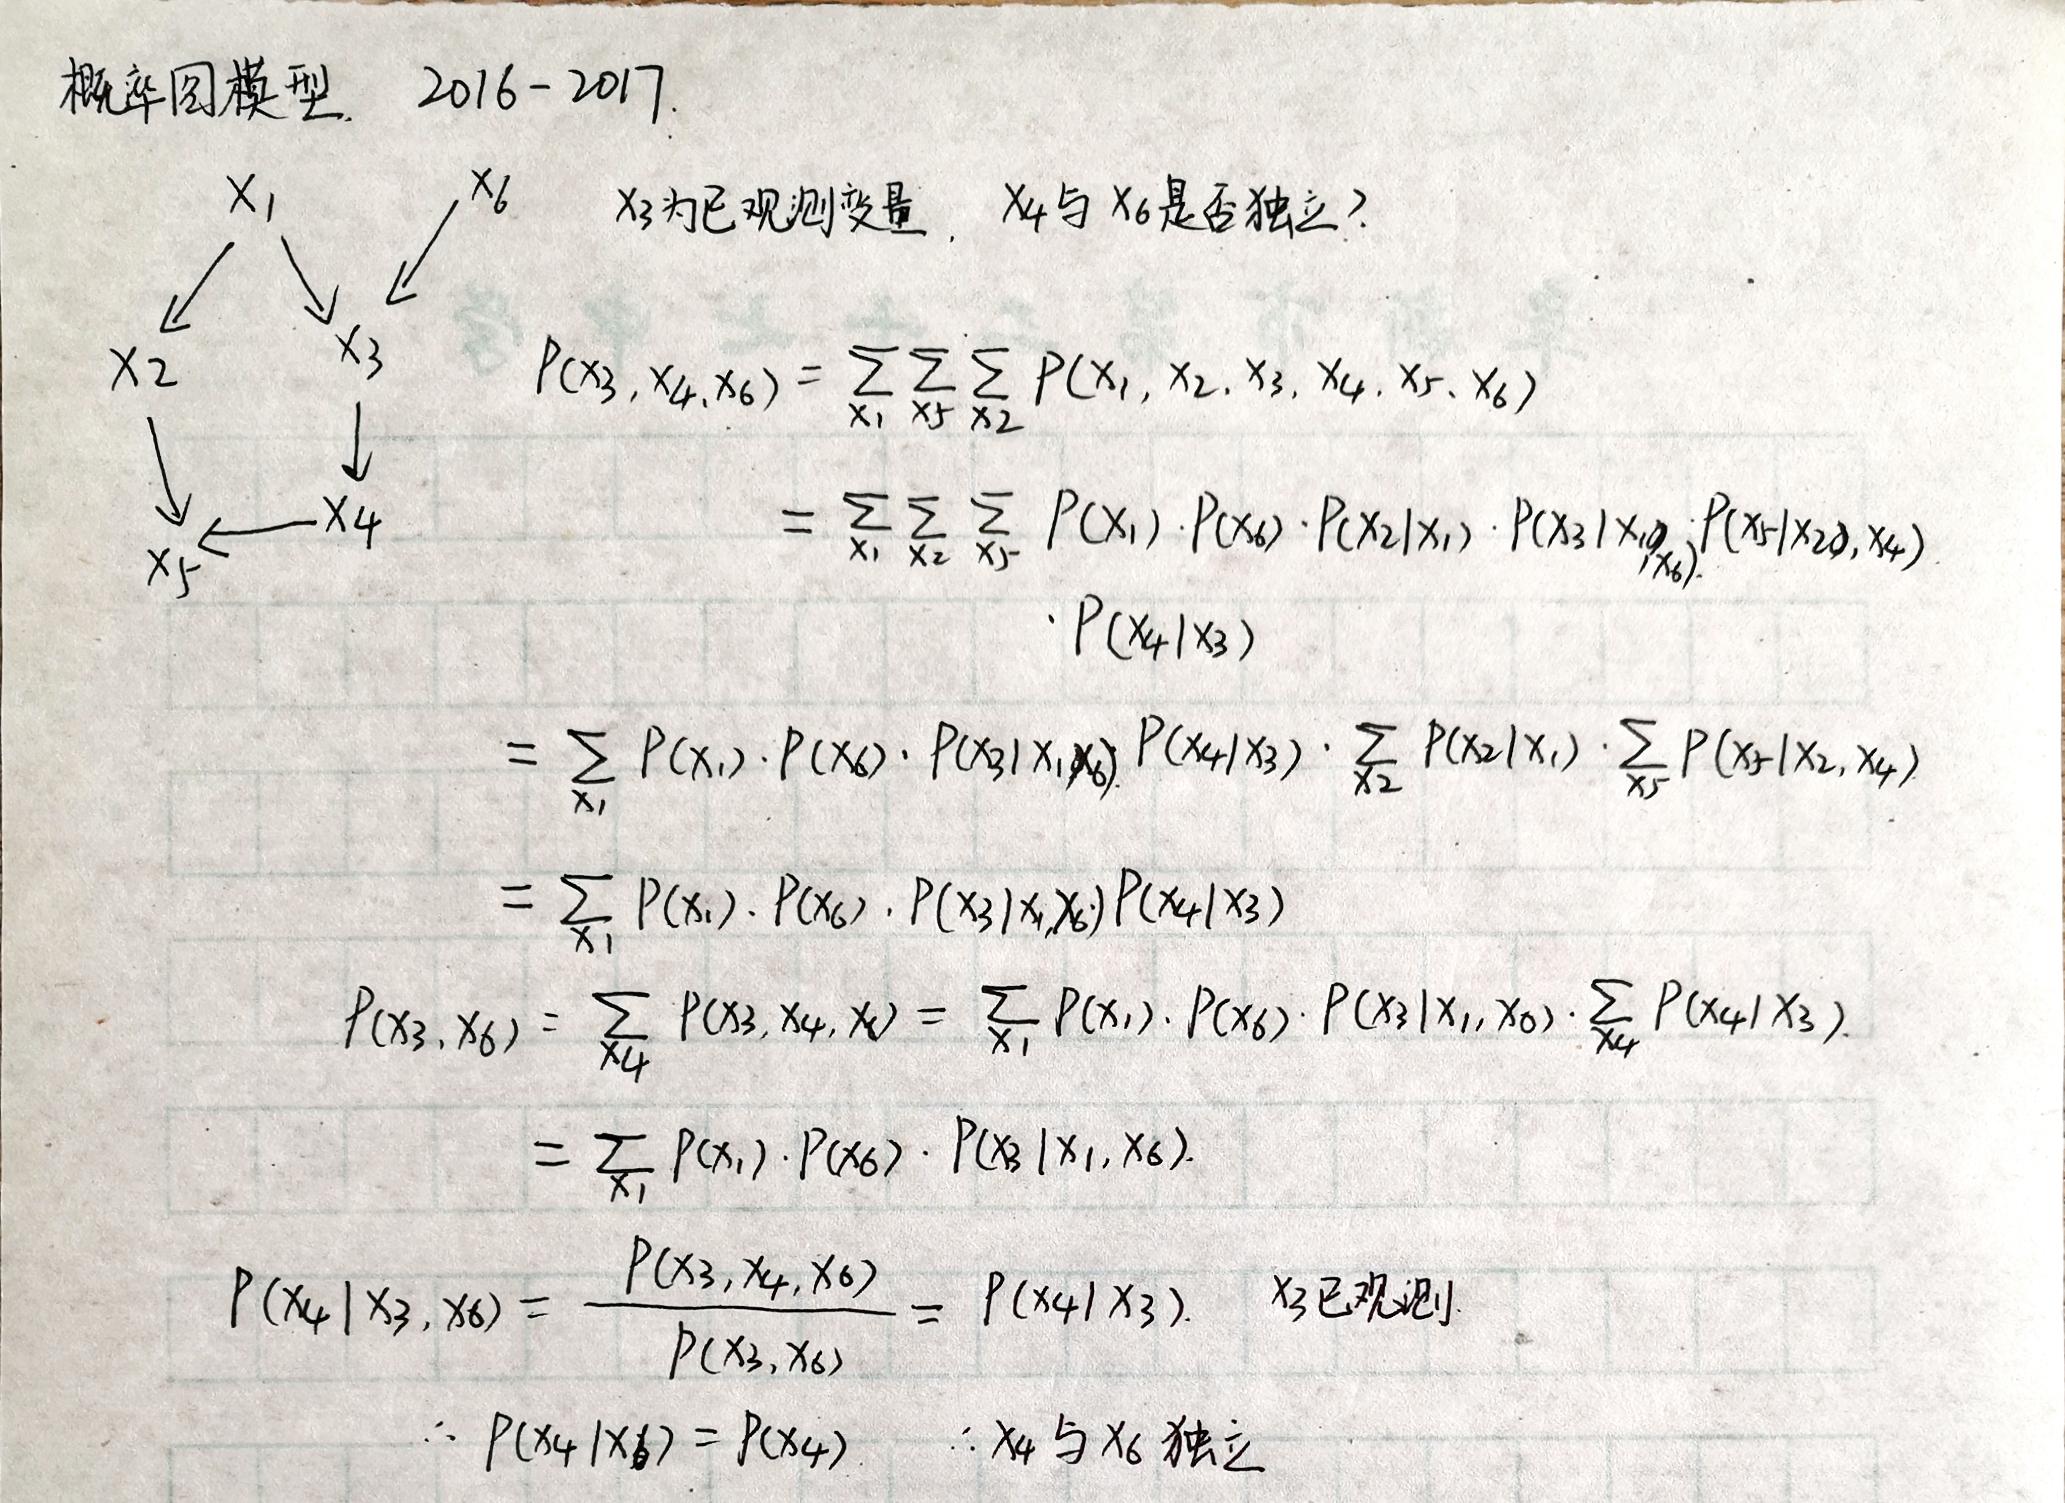 概率图模型. 2016-2017.
X1 X6 X3为已观测变量, X4与X6是否独立?
X2 X3 P(X3, X4, X6) = ∑X1 ∑X5 ∑X2 P(X1, X2, X3, X4, X5, X6)
X4
X5
= ∑X1 ∑X2 ∑X5 P(X1)·P(X6)·P(X2|X1)·P(X3|X1,X6)·P(X5|X2,X4)
·P(X4|X3)
= ∑X1 P(X1)·P(X6)·P(X3|X1,X6)·P(X4|X3)·∑X2 P(X2|X1)·∑X5 P(X5|X2,X4)
= ∑X1 P(X1)·P(X6)·P(X3|X1,X6)P(X4|X3)
P(X3,X6) = ∑X4 P(X3,X4,X6) = ∑X1 P(X1)·P(X6)·P(X3|X1,X6)·∑X4 P(X4|X3).
= ∑X1 P(X1)·P(X6)·P(X3|X1,X6).
P(X4|X3,X6) = P(X3,X4,X6) / P(X3,X6) = P(X4|X3). X3已观测.
∴ P(X4|X6) = P(X4) ∴ X4与X6独立